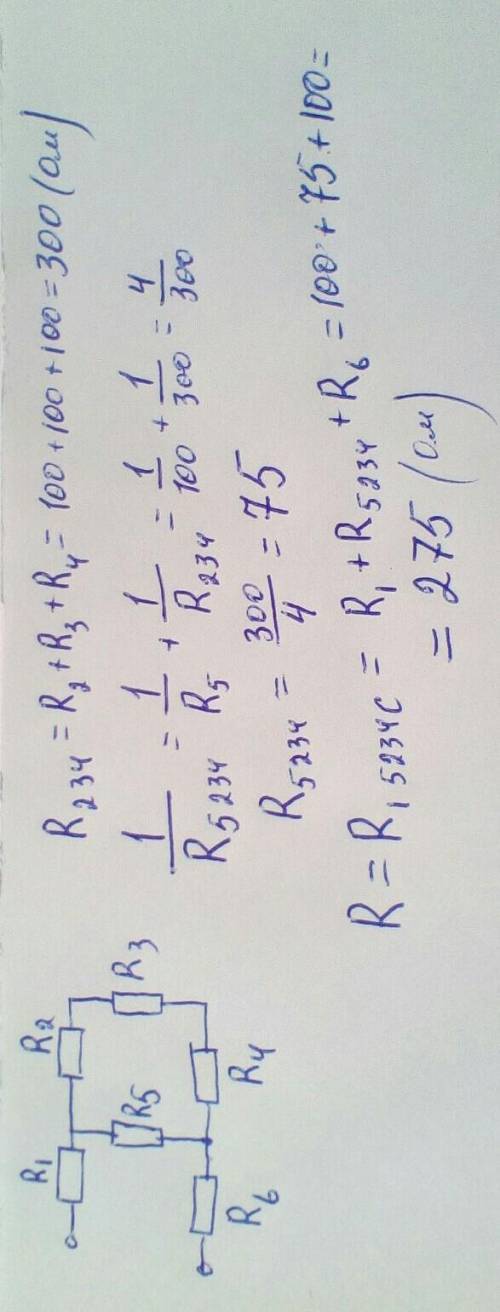 R₁ R₂
R₅ R₃
R₆ R₄
R₂₃₄ = R₂ + R₃ + R₄ = 100 + 100 + 100 = 300 (Ом)
1/R₅₂₃₄ = 1/R₅ + 1/R₂₃₄ = 1/100 + 1/300 = 4/300
R₅₂₃₄ = 300/4 = 75
R = R₁₅₂₃₄C = R₁ + R₅₂₃₄ + R₆ = 100 + 75 + 100 =
= 275 (Ом)